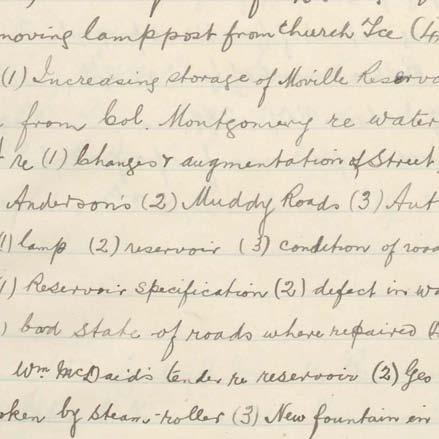 moving lamp post from Church Tce (4
(1) Increasing storage of Moville Reservo
from Col. Montgomery re water
re (1) Changes & augmentation of Street
Anderson's (2) Muddy Roads (3) Aut
(1) lamp (2) reservoir (3) condition of road
1) Reservoir Specification (2) defect in wa
) bad state of roads where repaired
Wm McDaid's tender re reservoir (2) Geo
oken by steam-roller (3) New fountain in